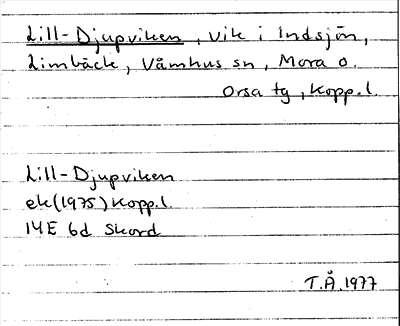 Lill-Djupviken, vik i Indsjön,
Limbäck, Våmhus sn, Mora o.
Orsa tg, Kopp.l.
Lill-Djupviken
ek(1975) Kopp.l.
14E 6d Skord
T.Å. 1977